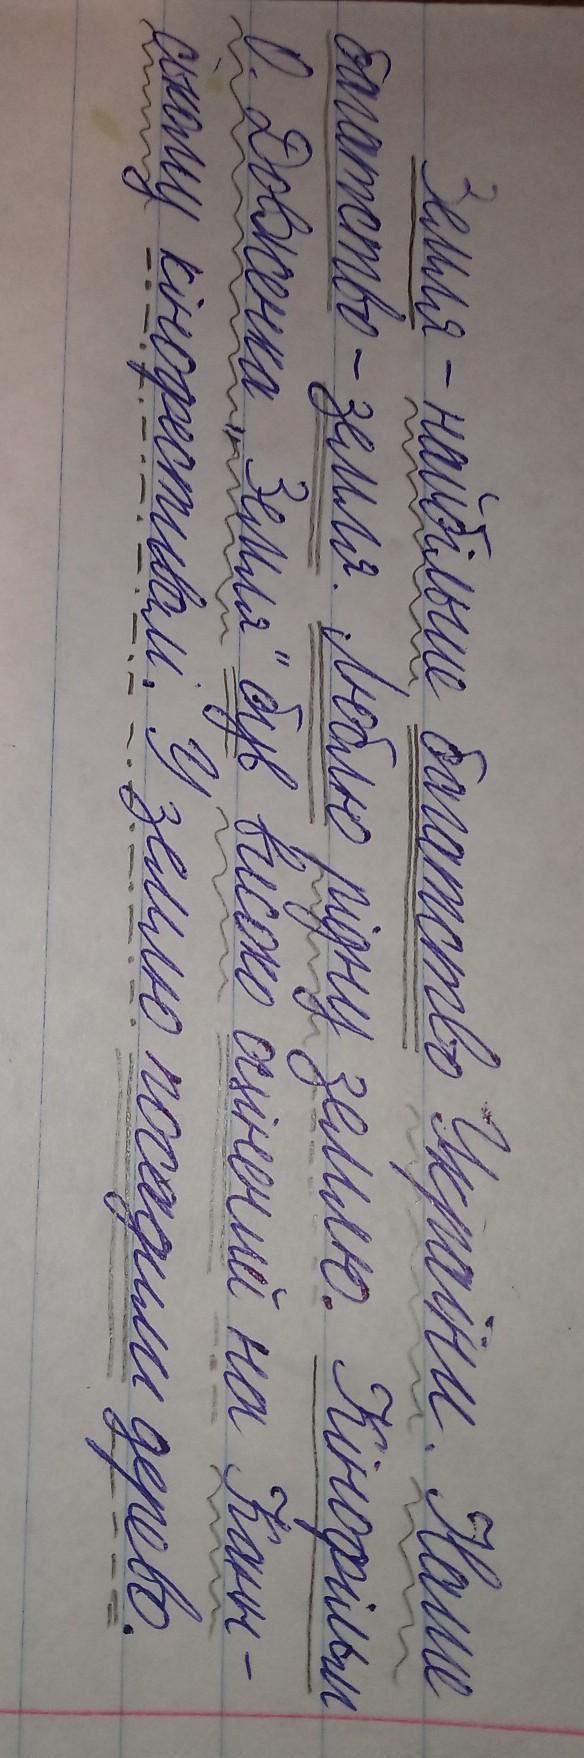 Земля – найбільше багатство України. Наше
багатство – земля. Люблю рідну землю. Кінофільм
О. Довженка „Земля" був високо оцінений на Канн-
ському кінофестивалі. У землю посадили дерево.